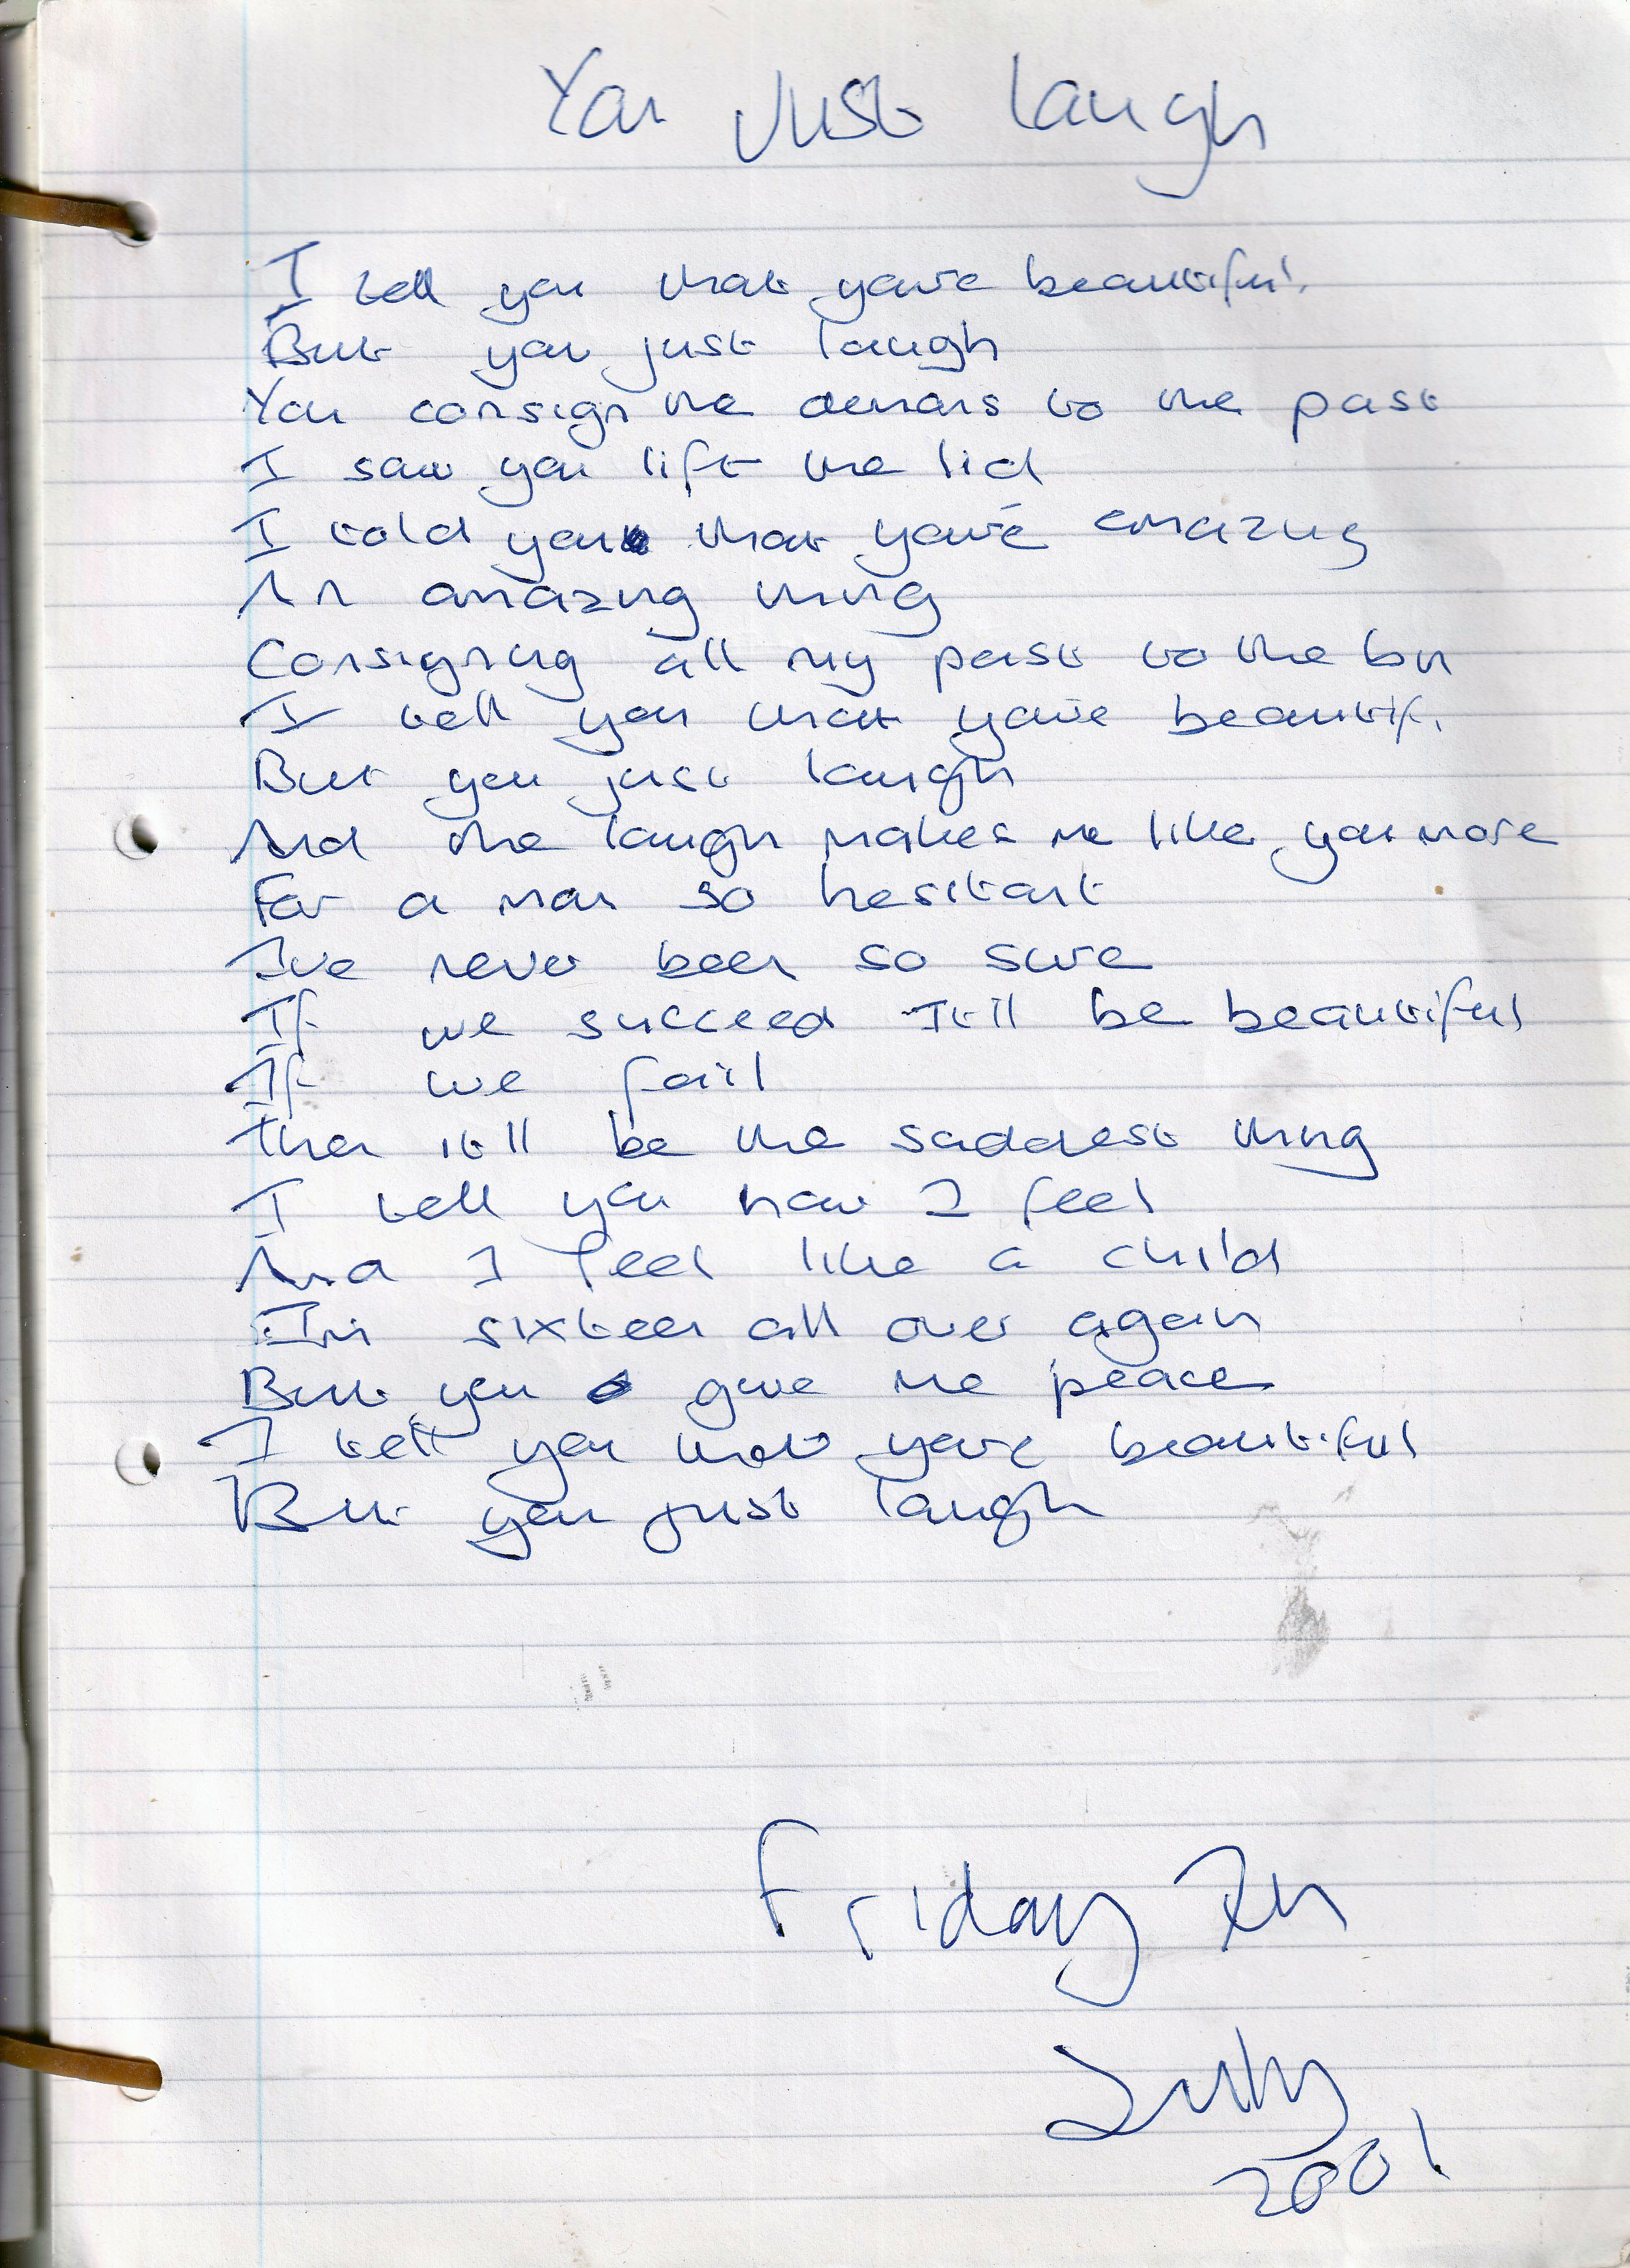 You Just laugh
I tell you that you're beautiful.
But you just laugh
You consign the demons to the past
I saw you lift the lid
I told you that you're amazing
An amazing thing
Consigning all my past to the bin
I tell you that you're beautif.
But you just laugh
And the laugh makes me like you more
For a man so hesitant
Ive never been so sure
If we succeed It'll be beautiful
If we fail
Then it'll be the saddest thing
I tell you how I feel
And I feel like a child
I'm sixteen all over again
But you give me peace
I tell you that you're beautiful
But you just laugh
Friday
July
2001